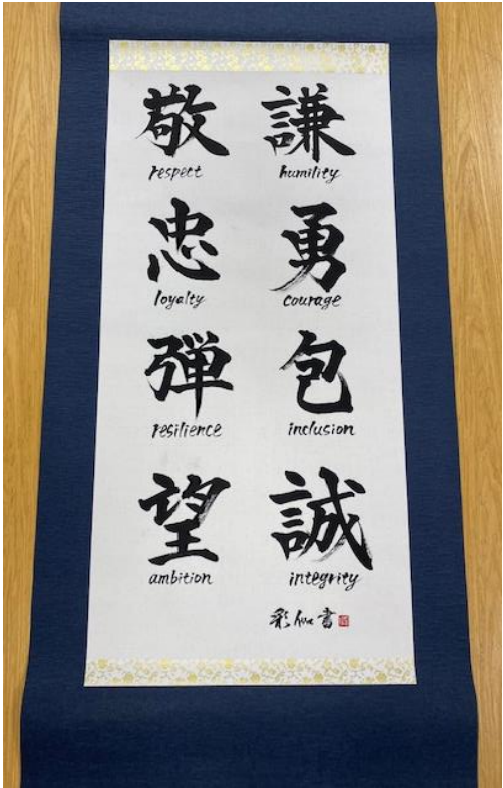 敬 謙
respect humility
忠 勇
loyalty courage
弾 包
resilience inclusion
望 誠
ambition integrity
彩 書